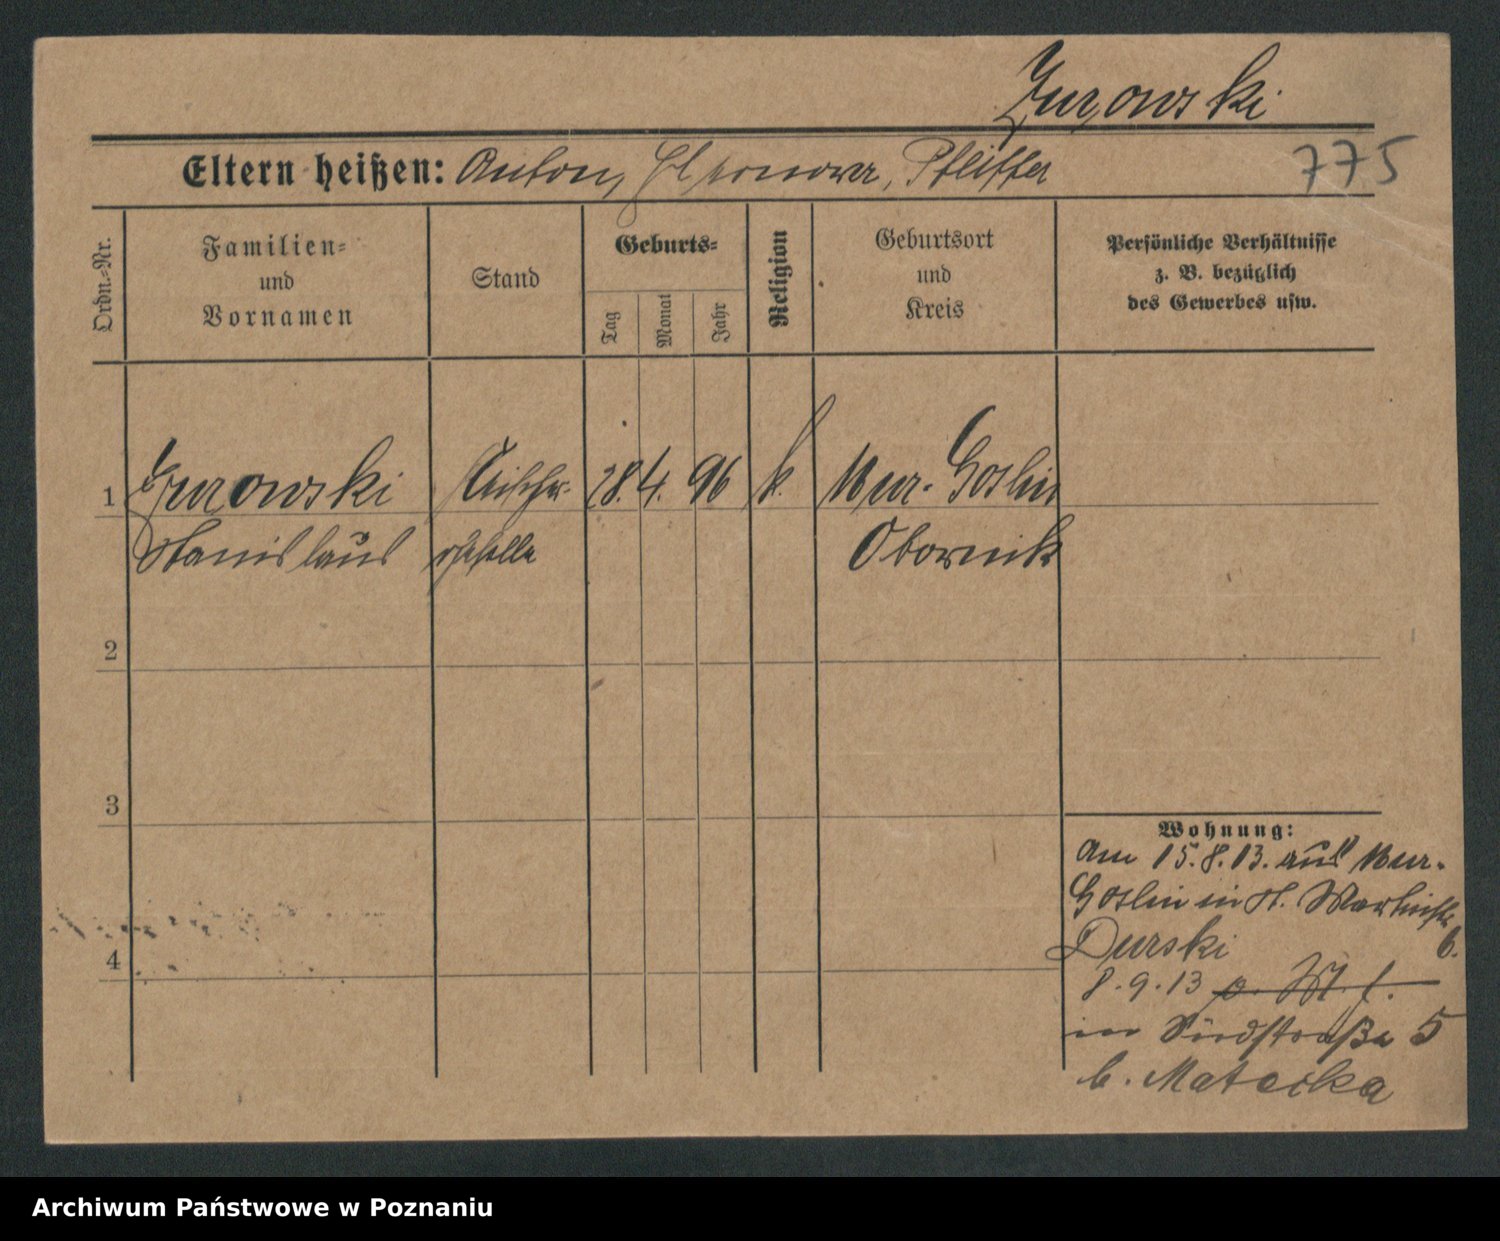 Zurowski
Eltern heißen: Anton, Eleonora, Pfeiffer
775
Ordn.-Nr.
Familien-
und
Vornamen
Stand
Geburts-
Tag
Monat
Jahr
Religion
Geburtsort
und
Kreis
Persönliche Verhältnisse
z. B. bezüglich
des Gewerbes usw.
1 Zurowski Tischler- 28. 4. 96 k. Mur. Goslin
Stanislaus geselle Obornik
2
3
4
Wohnung:
Am 15.8.13. aus Mur.-
Goslin in St. Martinstr.
Durski 6.
8.9.13
in Südstraße 5
b. Matecka
Archiwum Państwowe w Poznaniu